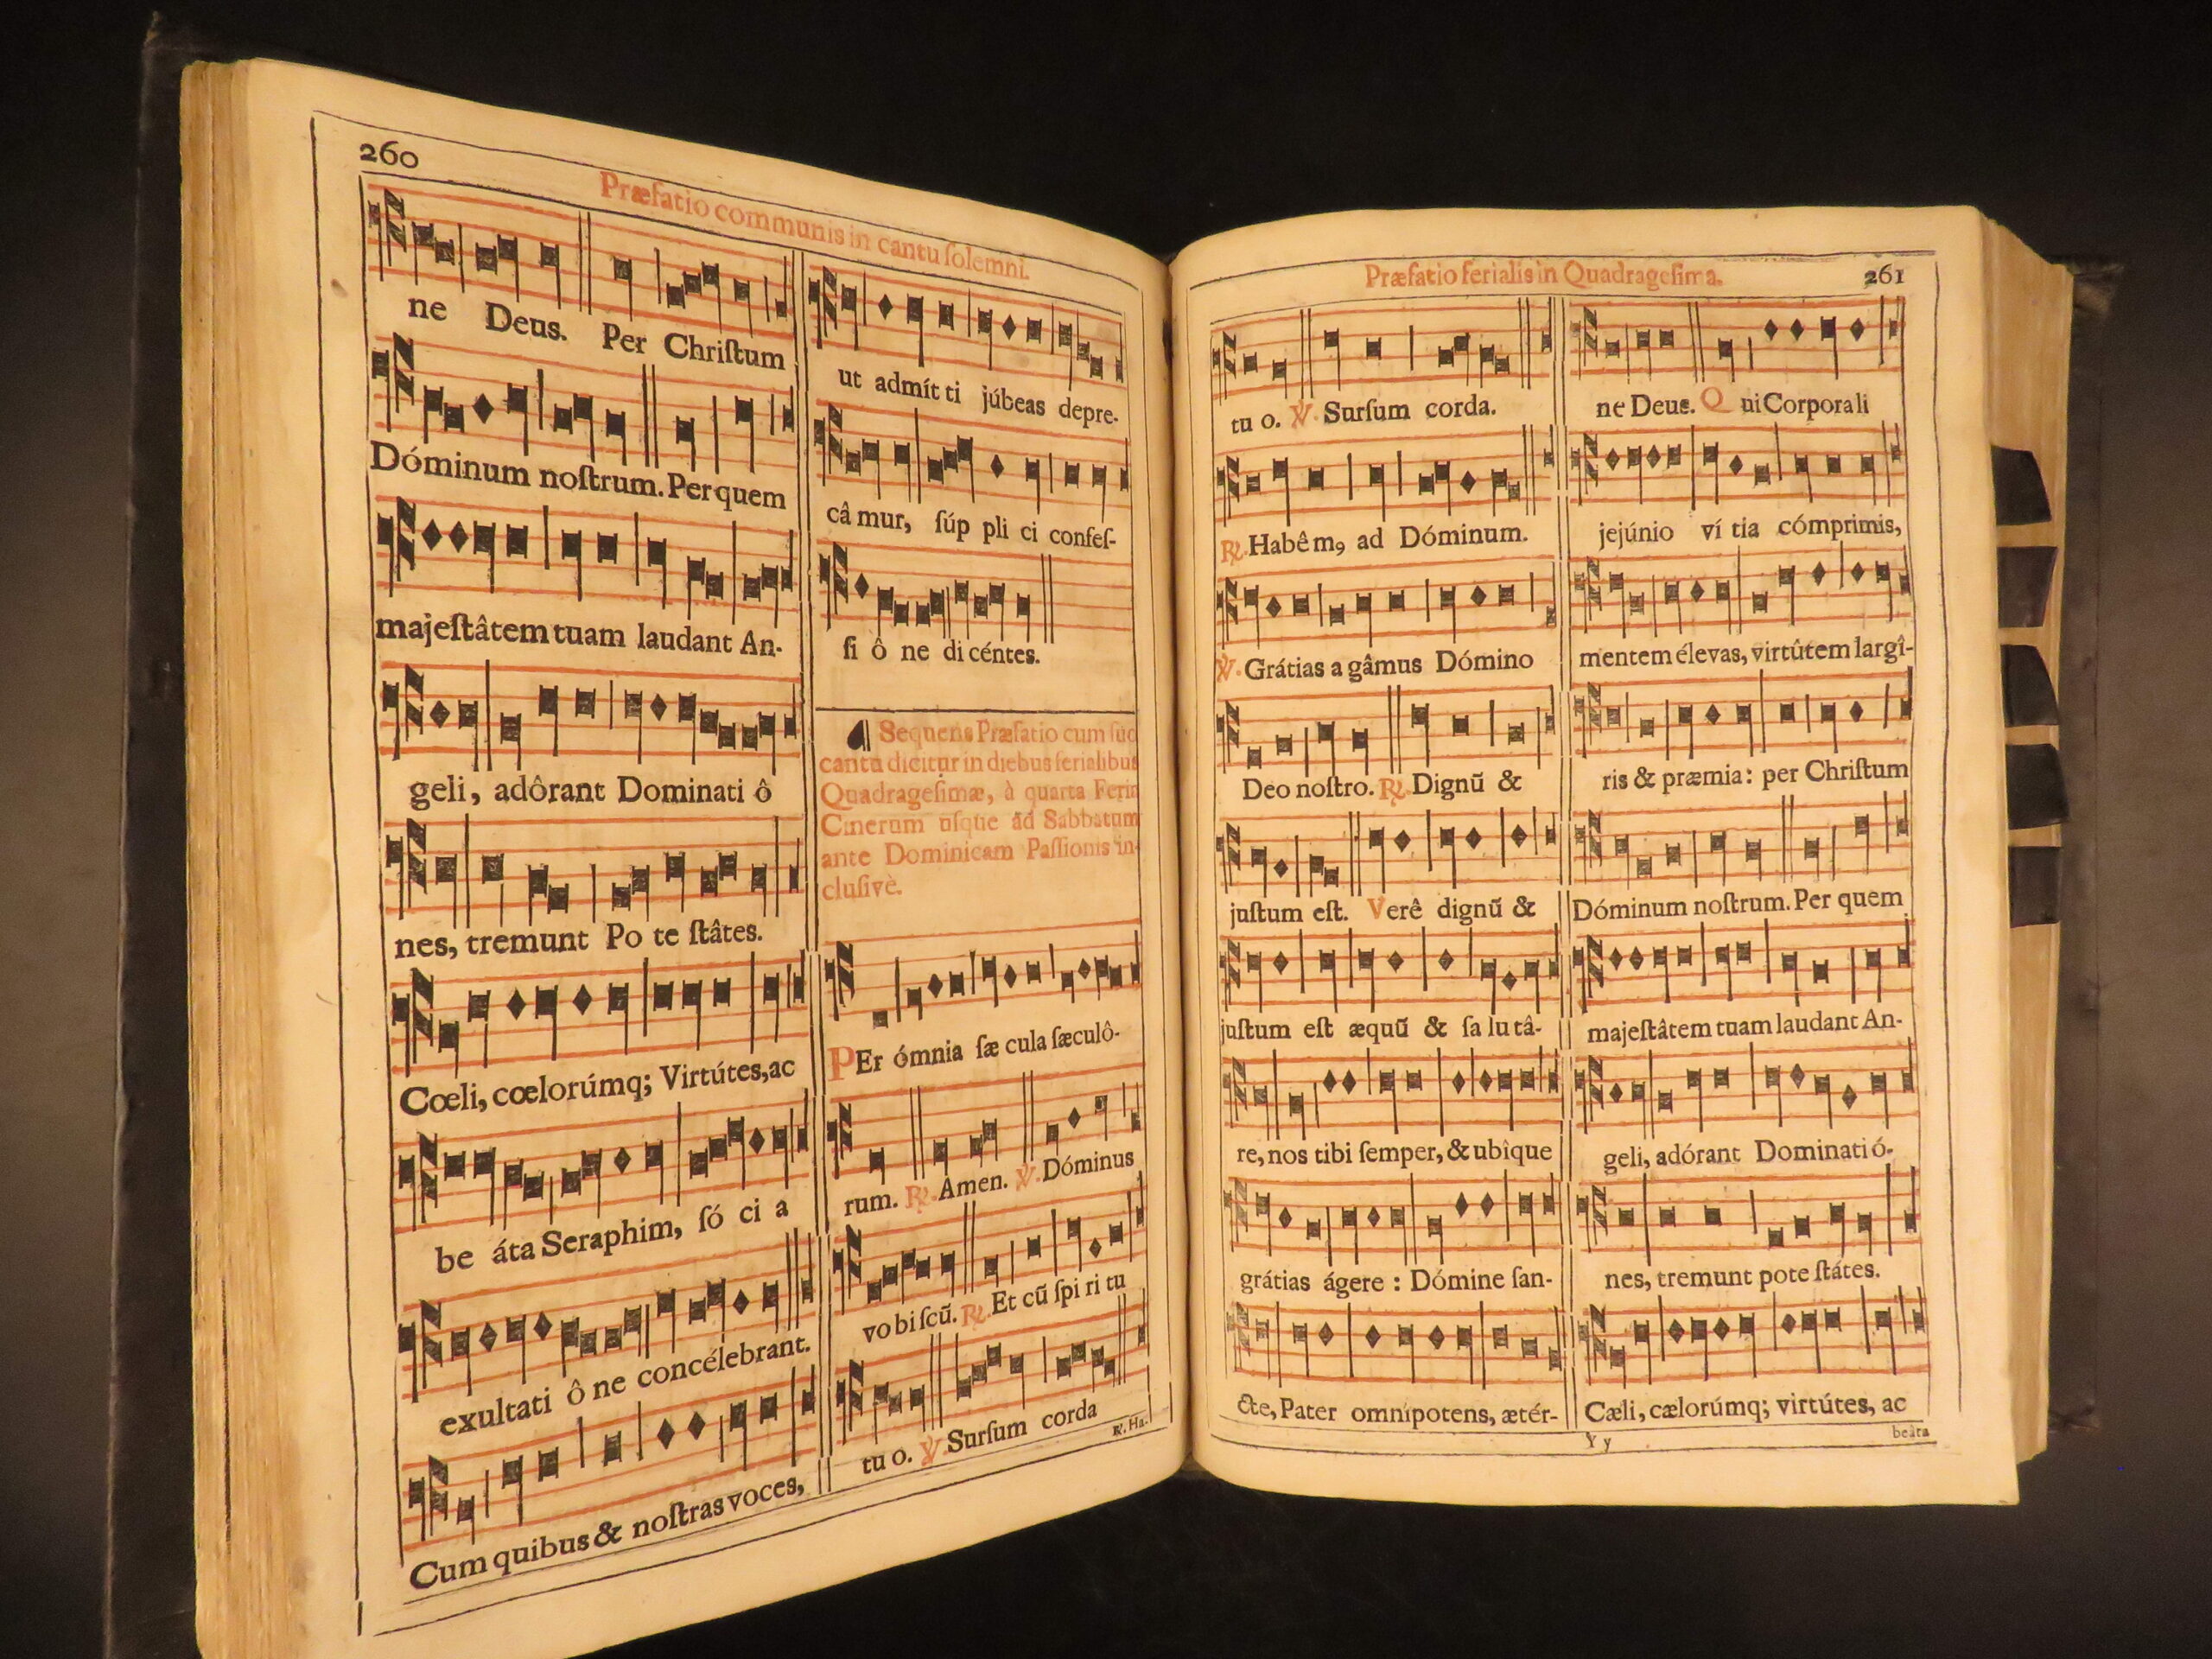 260
Præfatio communis in cantu ſolemni.
ne Deus. Per Chriſtum
Dóminum noſtrum. Per quem
majeſtâtem tuam laudant An-
geli, adôrant Dominati ô
nes, tremunt Po te ſtâtes.
Cœli, cœlorúmq; Virtútes, ac
be áta Seraphim, ſó ci a
exultati ô ne concélebrant.
Cum quibus & noſtras voces,
ut admít ti júbeas depre-
câ mur, ſúp pli ci confeſ-
ſi ô ne di céntes.
¶ Sequens Præfatio cum ſuo
cantu dicitur in diebus ferialibus
Quadrageſimæ, à quarta Feria
Cinerum uſque ad Sabbatum
ante Dominicam Paſſionis in-
cluſivè.
PEr ómnia ſæ cula ſæculô-
rum. ℟. Amen. ℣. Dóminus
vo bi ſcũ. ℟. Et cũ ſpi ri tu
tu o. ℣. Surſum corda
℟. Ha-
Præfatio ferialis in Quadrageſima.
261
tu o. ℣. Surſum corda.
℟. Habêm9 ad Dóminum.
℣. Grátias a gâmus Dómino
Deo noſtro. ℟. Dignũ &
juſtum eſt. Verê dignũ &
juſtum eſt æquũ & ſa lu tâ-
re, nos tibi ſemper, & ubîque
grátias ágere : Dómine ſan-
cte, Pater omnípotens, ætér-
ne Deus. Q ui Corporali
jejúnio ví tia cómprimis,
mentem élevas, virtûtem largî-
ris & præmia : per Chriſtum
Dóminum noſtrum. Per quem
majeſtâtem tuam laudant An-
geli, adórant Dominati ó-
nes, tremunt pote ſtátes.
Cæli, cælorúmq; virtútes, ac
Y y
beáta